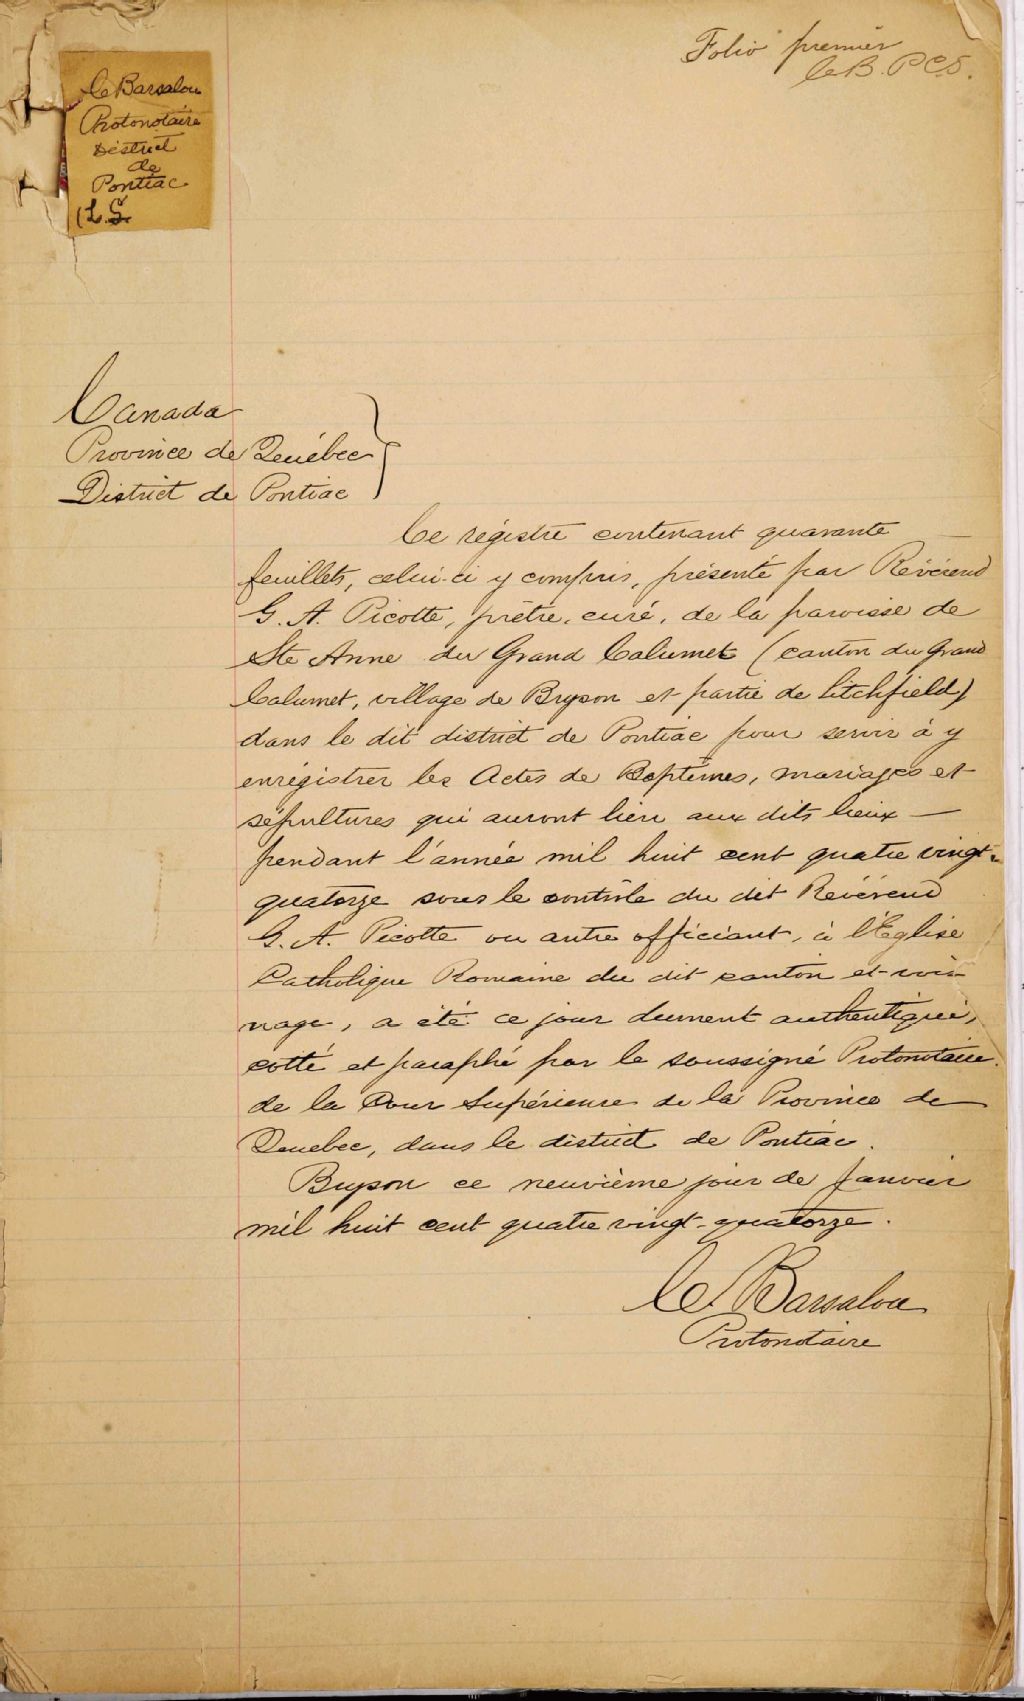 Folio premier
Ce B. P C S.
Ce Barsalou
Protonotaire
District
de
Pontiac
(L.S.
Canada
Province de Québec
District de Pontiac
Ce régistre contenant quarante
feuillets, celui-ci y compris, présenté par Révérend
G. A. Picotte, prêtre, curé, de la paroisse de
Ste Anne du Grand Calumet (canton du Grand
Calumet, village de Bryson et partie de Litchfield)
dans le dit district de Pontiac pour servir à y
enrégistrer les Actes de Baptêmes, mariages et
sépultures qui auront lieu aux dits lieux —
pendant l'année mil huit cent quatre vingt-
quatorze sous le contrôle du dit Révérend
G. A. Picotte ou autre officiant, à l'Eglise
Catholique Romaine du dit canton et voisi-
nage, a été ce jour dument authentiqué,
cotté et paraphé par le soussigné Protonotaire
de la Cour Supérieure de la Province de
Quebec, dans le district de Pontiac.
Bryson ce neuvième jour de Janvier
mil huit cent quatre vingt-quatorze.
Ce Barsalou
Protonotaire